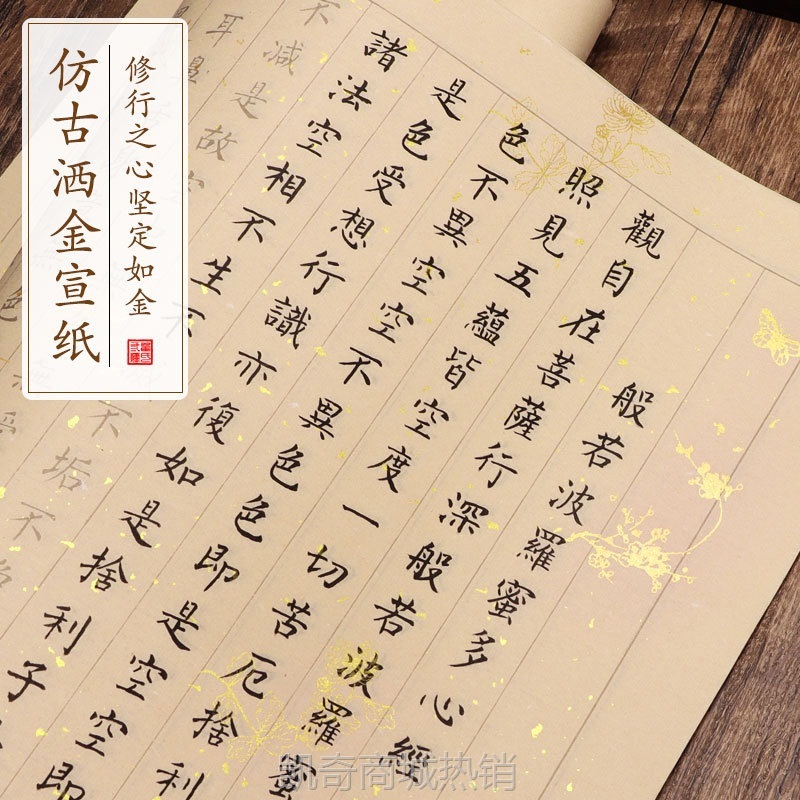 仿古洒金宣纸
修行之心坚定如金
般若波羅蜜多心經
觀自在菩薩行深般若波羅蜜
照見五蘊皆空度一切苦厄捨利
色不異空空不異色色即是空空即
是色受想行識亦復如是捨利子
諸法空相不生不不垢不
不減是故空
耳鼻
奇商城热销